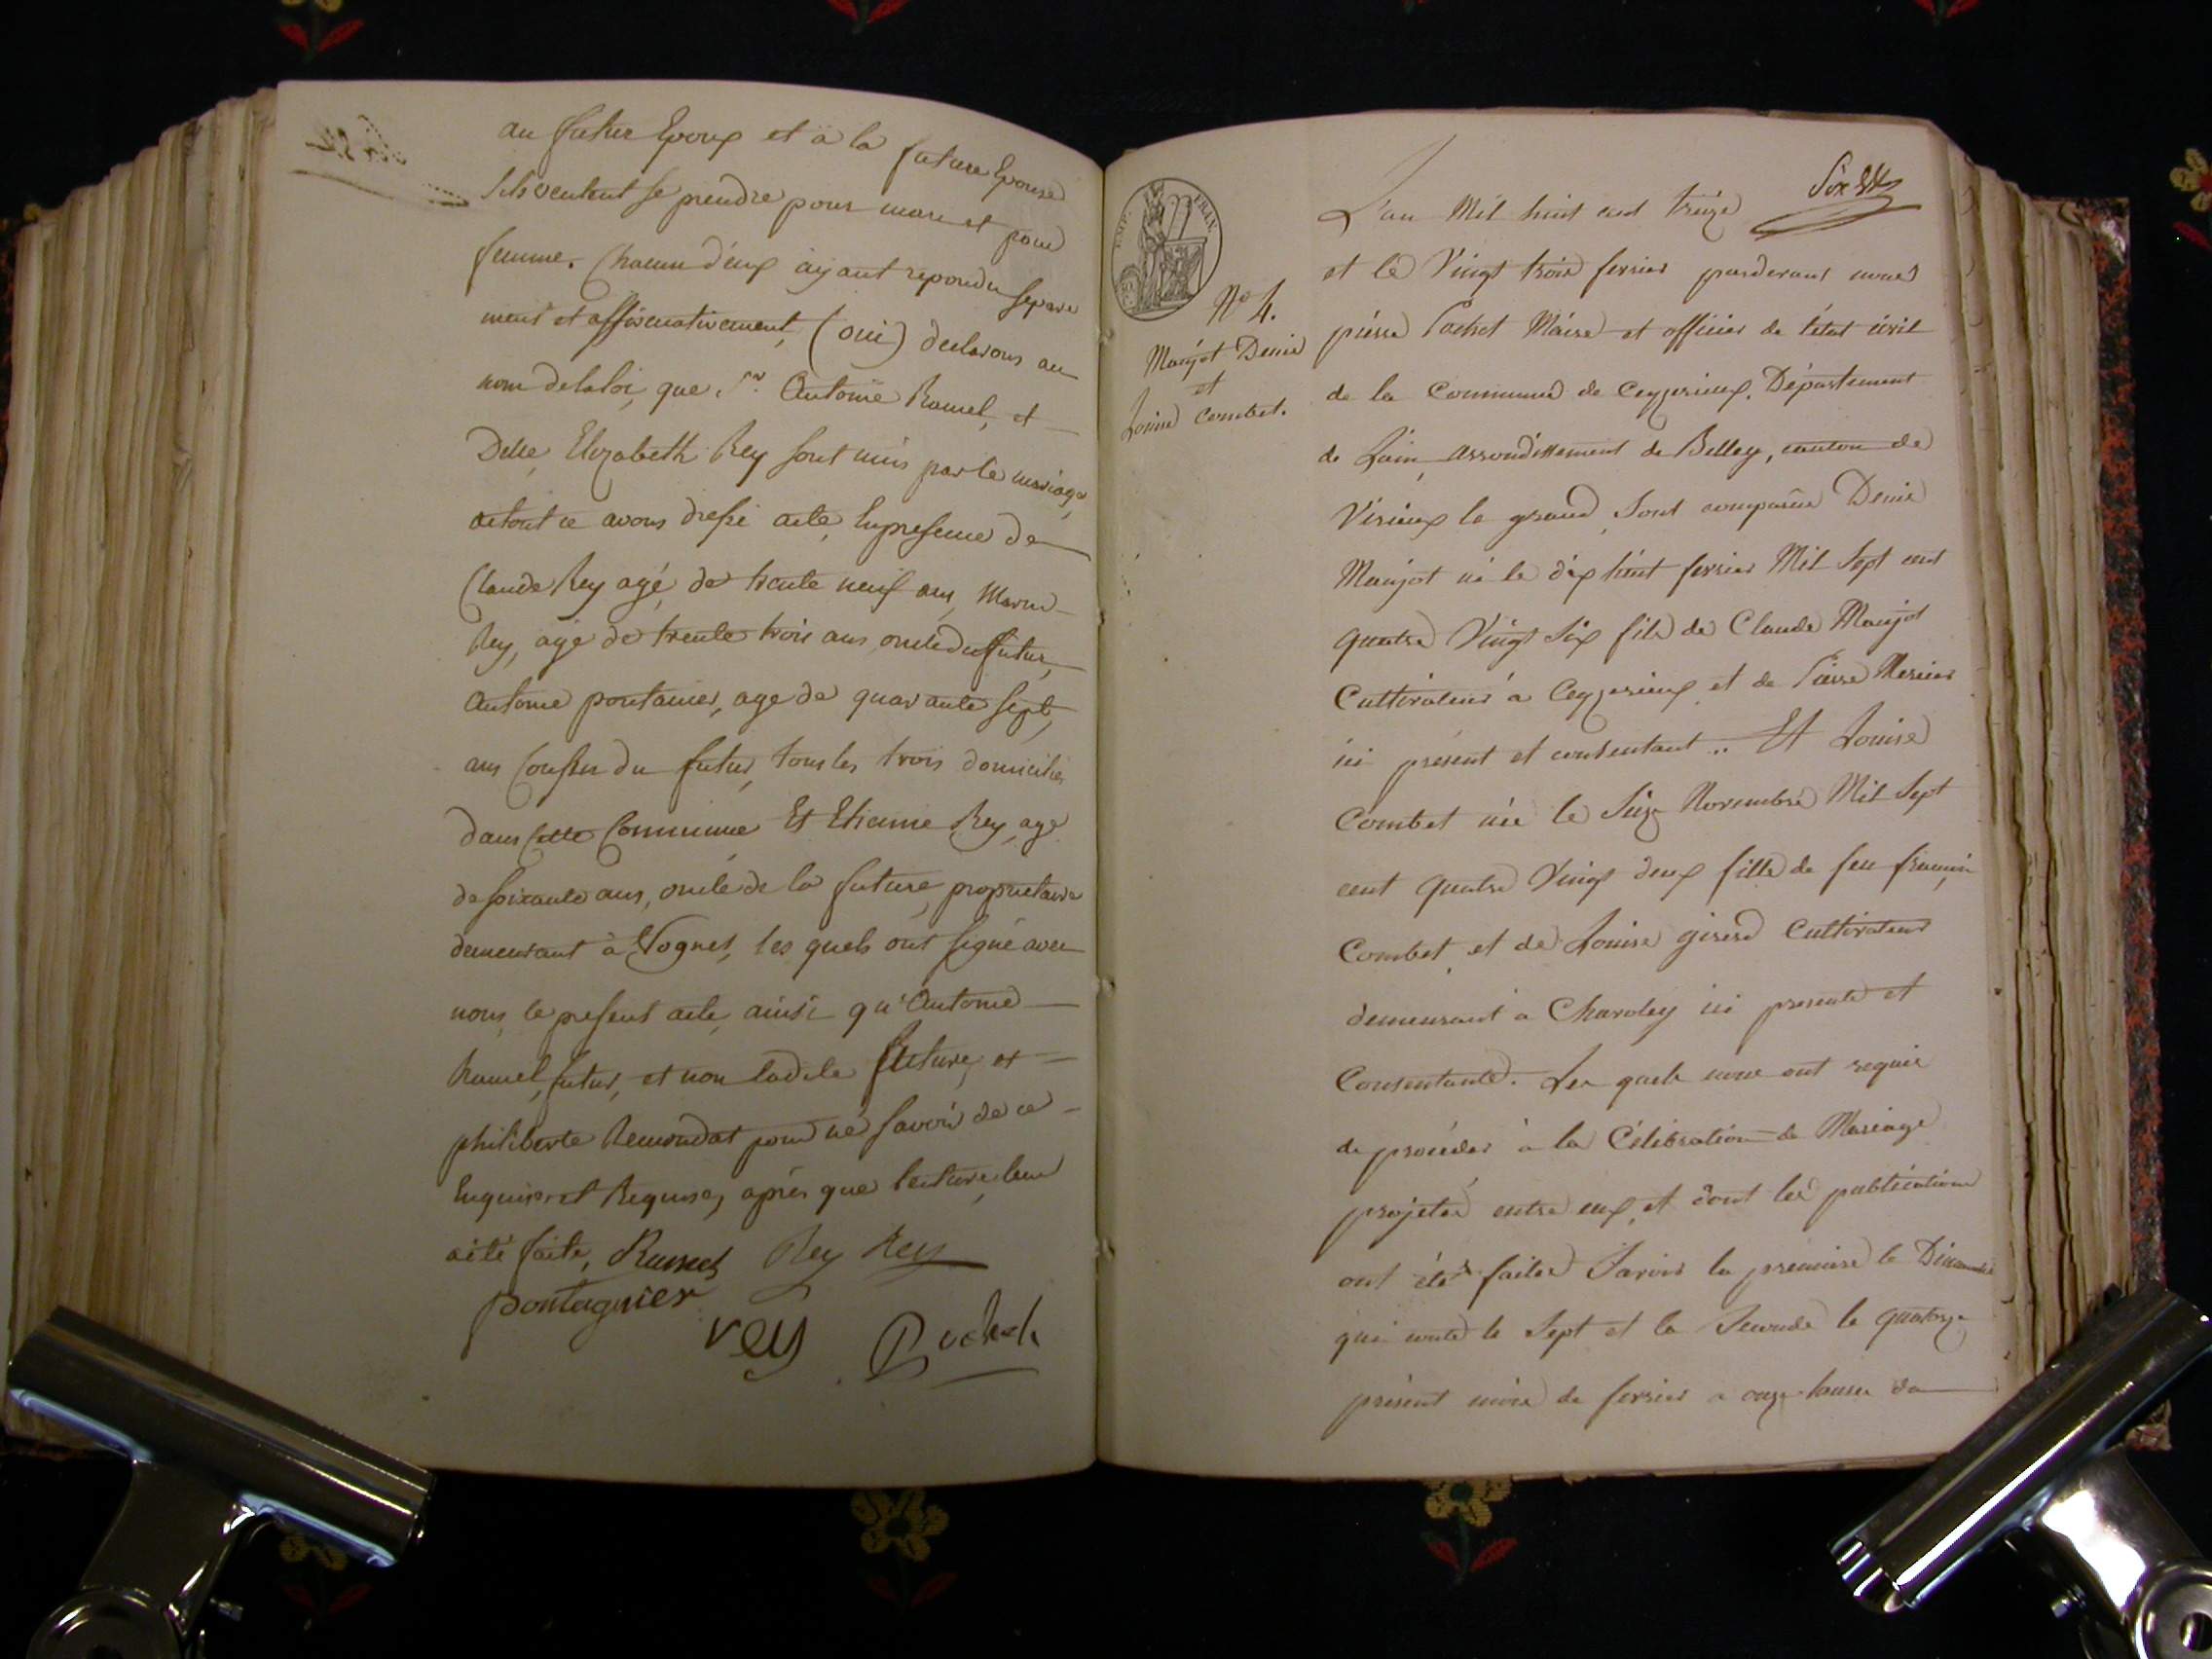 au futur Epoux et à la future Epouse
sils veulent se prendre pour mari et pour
femme. Chacun d'eux ayant repondu separe
ment et affirmativement, (oui) declarons au
nom de la loi, que Sr Antoine Ramel, et
Delle Elizabeth Rey sont unis par le mariage,
de tout ce avons dressé acte, En presence de
Claude Rey agé, de trente neuf ans,
Rey, agé de trente trois ans oncle du futur,
Antoine pontanier, age de quarante sept,
ans Cousin du futur, tous les trois domiciliés
dans Cette Commune Et Etienne Rey, agé
de soixante ans, oncle de la future, proprietaire
demeurant à Vognes, les quels ont signé avec
nous, le present acte, ainsi qu'Antoine
Ramel, futur, et non ladite future, et
philiberte Remondat pour ne savoir de ce
Enquises et Requises, après que lecture, leur
a été faite, Ramel Rey Rey
pontagnier
rey Pochet
L'an Mil huit cent treize Six
et le Vingt trois fevrier pardevant nous
N° 4.
Maujot Denis
et
Louise Combet.
pierre Pochet Maire et officier de l'état civil
de la Commune de Ceyzerieux, Département
de Lain, arrondissement de Belley, canton de
Virieux le grand, Sont comparus Denis
Maujot né le dix huit fevrier Mil Sept cent
quatre Vingt Six fils de Claude Maujot
Cultivateur à Ceyzerieux et de Pierre Mercier
ici présent et consentant .. Et Louise
Combet née le Seize Novembre Mil Sept
cent quatre Vingt deux fille de feu françois
Combet, et de Louise girerd Cultivateur
demeurant a Charoley ici presente et
Consentante. Les quels nous ont requis
de procéder à la Célébration de Mariage
projeté entre eux, et dont les publications
ont été faites Savoir la premiere le Dimanche
qui conte le Sept et la Seconde le quatorze
présent mois de fevrier a onze heures du